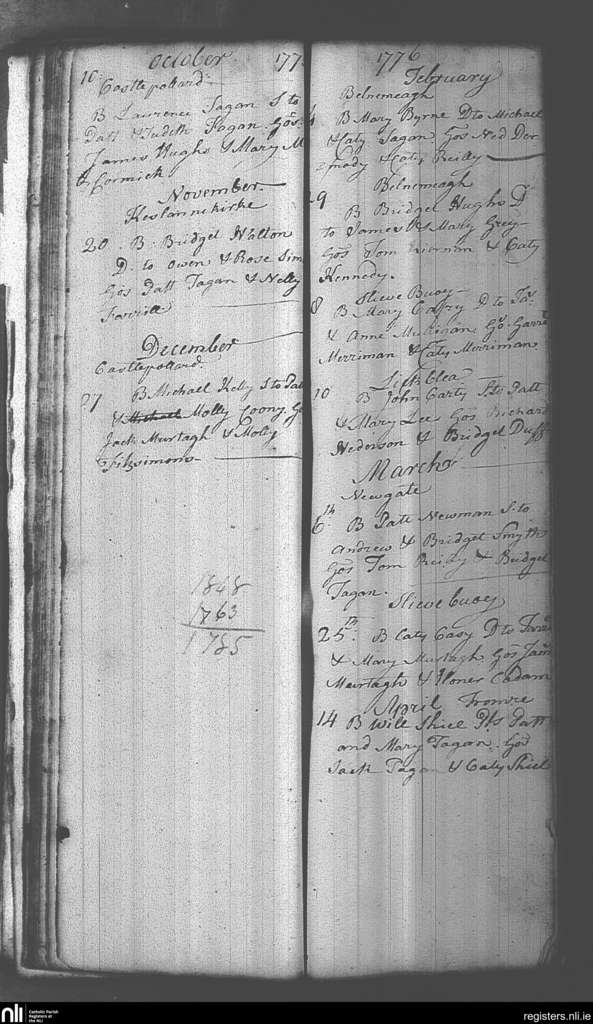 October 177
10 Castlepollard
B Laurence Fagan S to
Patt & Judith Fagan Gos
James Hughs & Mary M
Cormick
November
20 B: Bridget Walton
D. to Owen & Rose Sim
Gos Patt Fagan & Nelly
December
Castlepollard
27 B Michael Kelly S to Pat
& Molly Coony Go
Jack Murtagh & Molly
Fitzsimons
1848
1763
1785
1776
February
Belnemeagh
B Mary Byrne D to Michael
& Caty Fagan Gos Ned Der
mody & Caty Reilly
Belnemeagh
9 B Bridget Hughs D
to James & Mary Grey
Gos Tom Kiernan & Caty
Kennedy.
Slieve Buoy
8 B Mary Cafry D to Ja
& Anne Mulligan Gos Garre
Merriman & Caty Merriman
10 B John Carty S to Patt
& Mary Lee Gos Richard
Hederson & Bridget Duff
March
Newgate
6th B Patt Newman S to
Andrew & Bridget Smyth
Gos Tom Reidy & Bridget
Fagan.
Slieve buoy
25th B Caty Casy D to
& Mary Murtagh Gos Jam
Murtagh & Cadam
April
14 B Will Shiel Patt
and Mary Fagan Gos
Jack Fagan & Caty Shiel
nli
Catholic Parish
Registers at
the NLI
registers.nli.ie